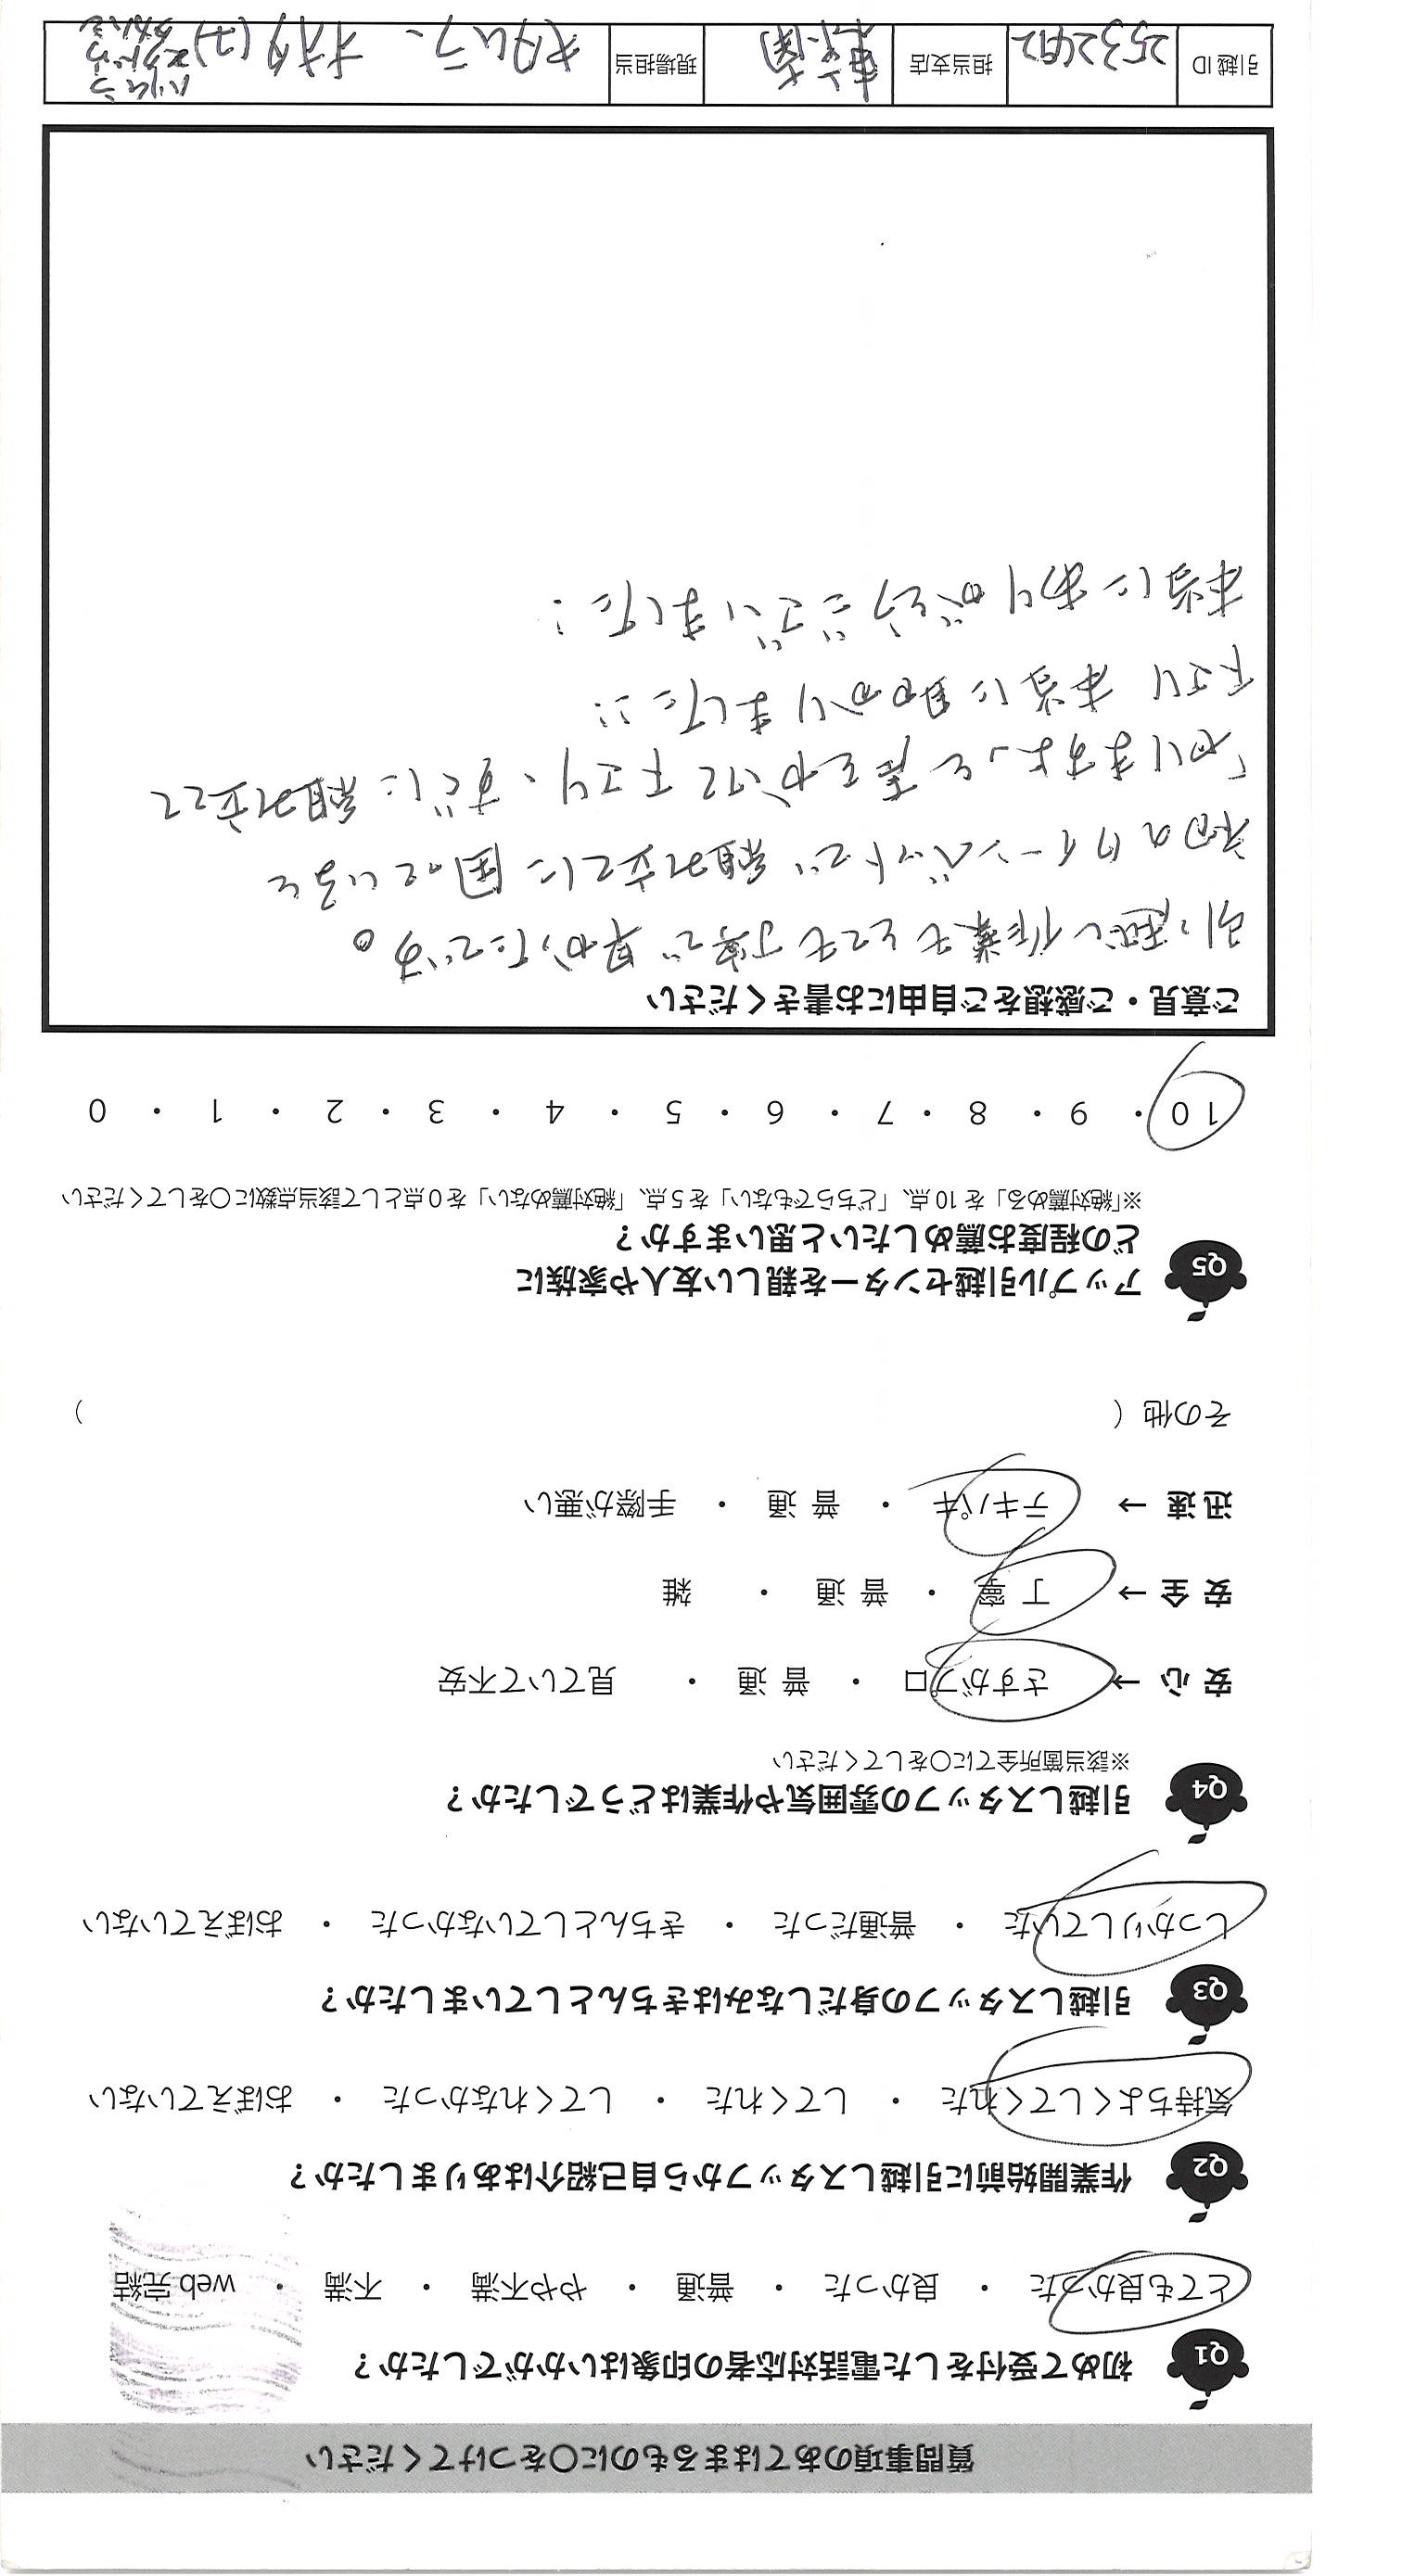 質問事項のあてはまるものに○をつけてください
Q1 初めて受付をした電話対応者の印象はいかがでしたか?
とても良かった ・ 良かった ・ 普通 ・ やや不満 ・ 不満 ・ web 完結
Q2 作業開始前に引越しスタッフから自己紹介はありましたか?
気持ちよくしてくれた ・ してくれた ・ してくれなかった ・ おぼえていない
Q3 引越しスタッフの身だしなみはきちんとしていましたか?
しっかりしていた ・ 普通だった ・ きちんとしていなかった ・ おぼえていない
Q4 引越しスタッフの雰囲気や作業はどうでしたか?
※該当箇所全てに○をしてください
安 心 → さすがプロ ・ 普 通 ・ 見ていて不安
安 全 → 丁 寧 ・ 普 通 ・ 雑
迅 速 → テキパキ ・ 普 通 ・ 手際が悪い
その他 ( )
Q5 アップル引越センターを親しい友人や家族に
どの程度お薦めしたいと思いますか?
※「絶対薦める」を 10 点、「どちらでもない」を 5 点、「絶対薦めない」を 0 点として該当点数に○をしてください
10 ・ 9 ・ 8 ・ 7 ・ 6 ・ 5 ・ 4 ・ 3 ・ 2 ・ 1 ・ 0
ご意見・ご感想をご自由にお書きください
引っ越し作業もとても丁寧で早かったです。
初のクイーンベットで組み立てに困っていると
「やりますよ」と声をかけて下さり、すぐに組み立てて
下さり 本当に助かりました!!
本当にありがとうございました!
引越 ID 担当支店 現場担当 キタムラ、オオタ(ユ)